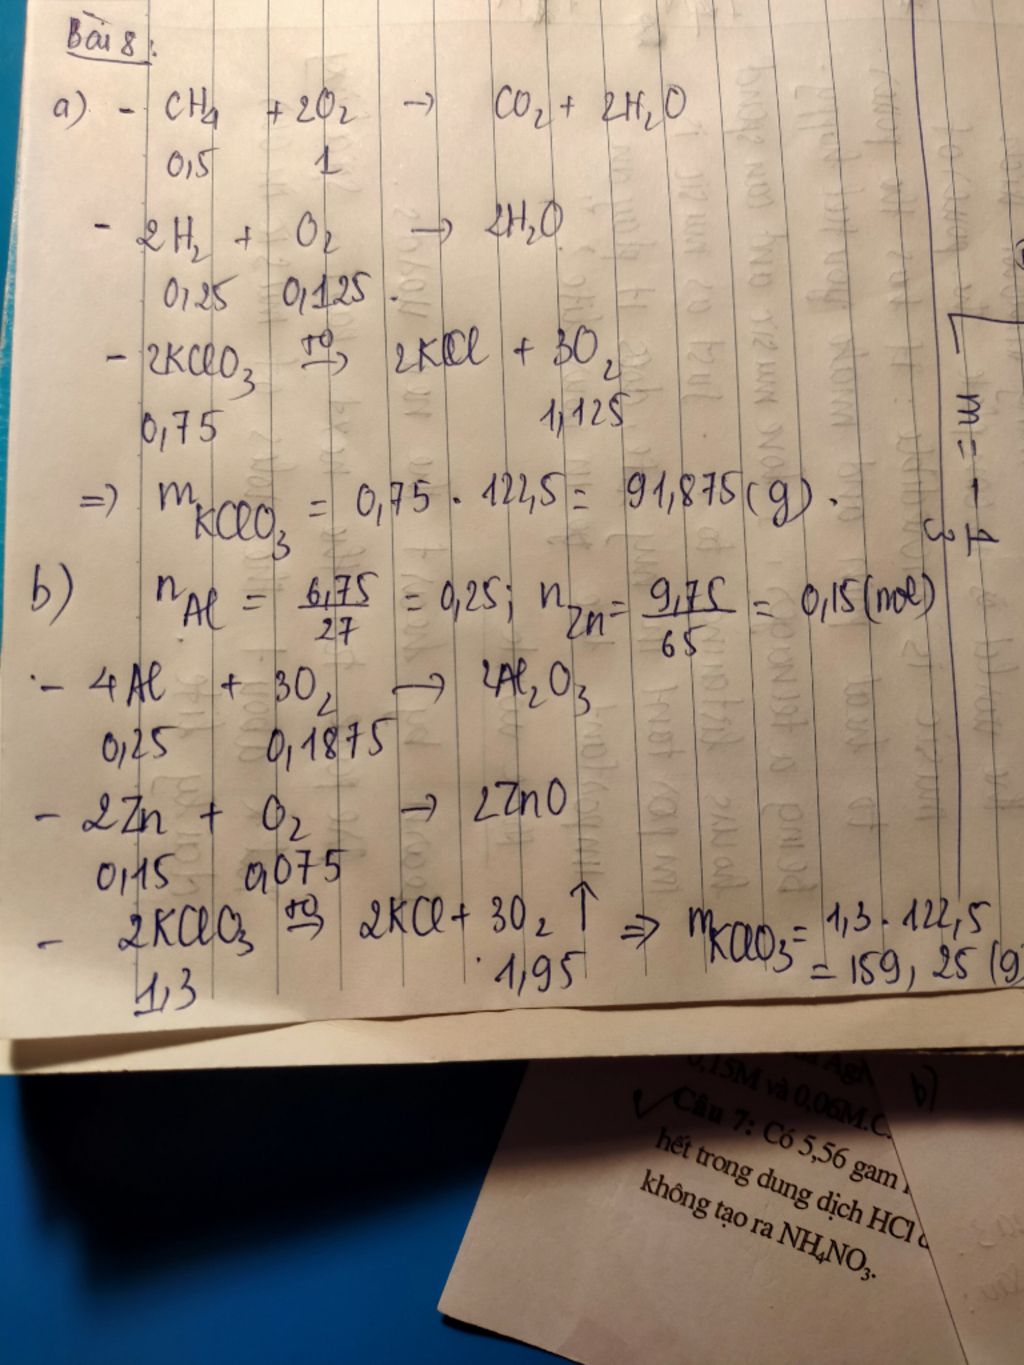 Bài 8:
a) - CH4 + 2O2 → CO2 + 2H2O
0,5 1
- 2H2 + O2 → 2H2O
0,25 0,125.
- 2KClO3 →(t°) 2KCl + 3O2
0,75 1,125
=> mKClO3 = 0,75 . 122,5 = 91,875 (g).
b) nAl = 6,75/27 = 0,25; nZn = 9,75/65 = 0,15 (mol)
- 4Al + 3O2 → 2Al2O3
0,25 0,1875
- 2Zn + O2 → 2ZnO
0,15 0,075
- 2KClO3 →(t°) 2KCl + 3O2 ↑ => mKClO3 = 1,3 . 122,5
1,3 1,95 = 159,25 (g)
m = - 1/3
0,15M và 0,06M.C.
Câu 7: Có 5,56 gam
hết trong dung dịch HCl
không tạo ra NH4NO3.
b)